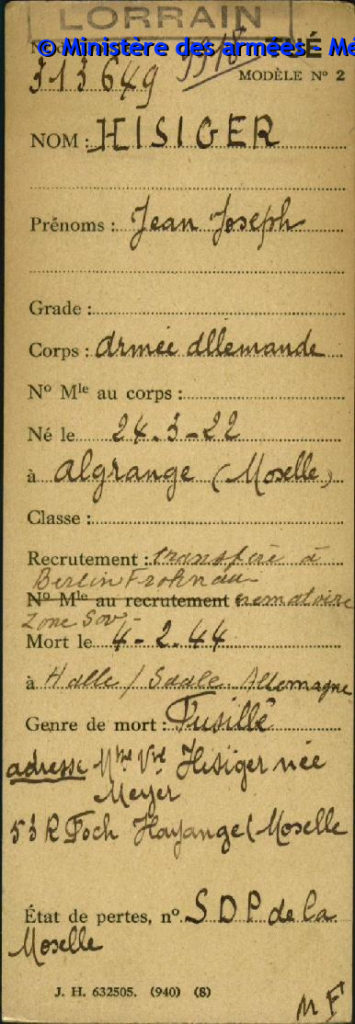 LORRAIN
© Ministère des armées - Mé
313649
MODÈLE N° 2
NOM : HISIGER
Prénoms : Jean Joseph
Grade :
Corps : Armée Allemande
N° Mle au corps :
Né le 24.3-22
à Algrange (Moselle)
Classe :
Recrutement : transféré à
Berlin Frohnau
N° Mle au recrutement crematoire
Zone Sov.
Mort le 4-2.44
à Halle / Saale Allemagne
Genre de mort : Fusillé
adresse Mme Vve Hisiger née
Meyer
53 R Foch Hayange (Moselle
État de pertes, n°. S D P de la
Moselle
J. H. 632505. (940) (8)
M F